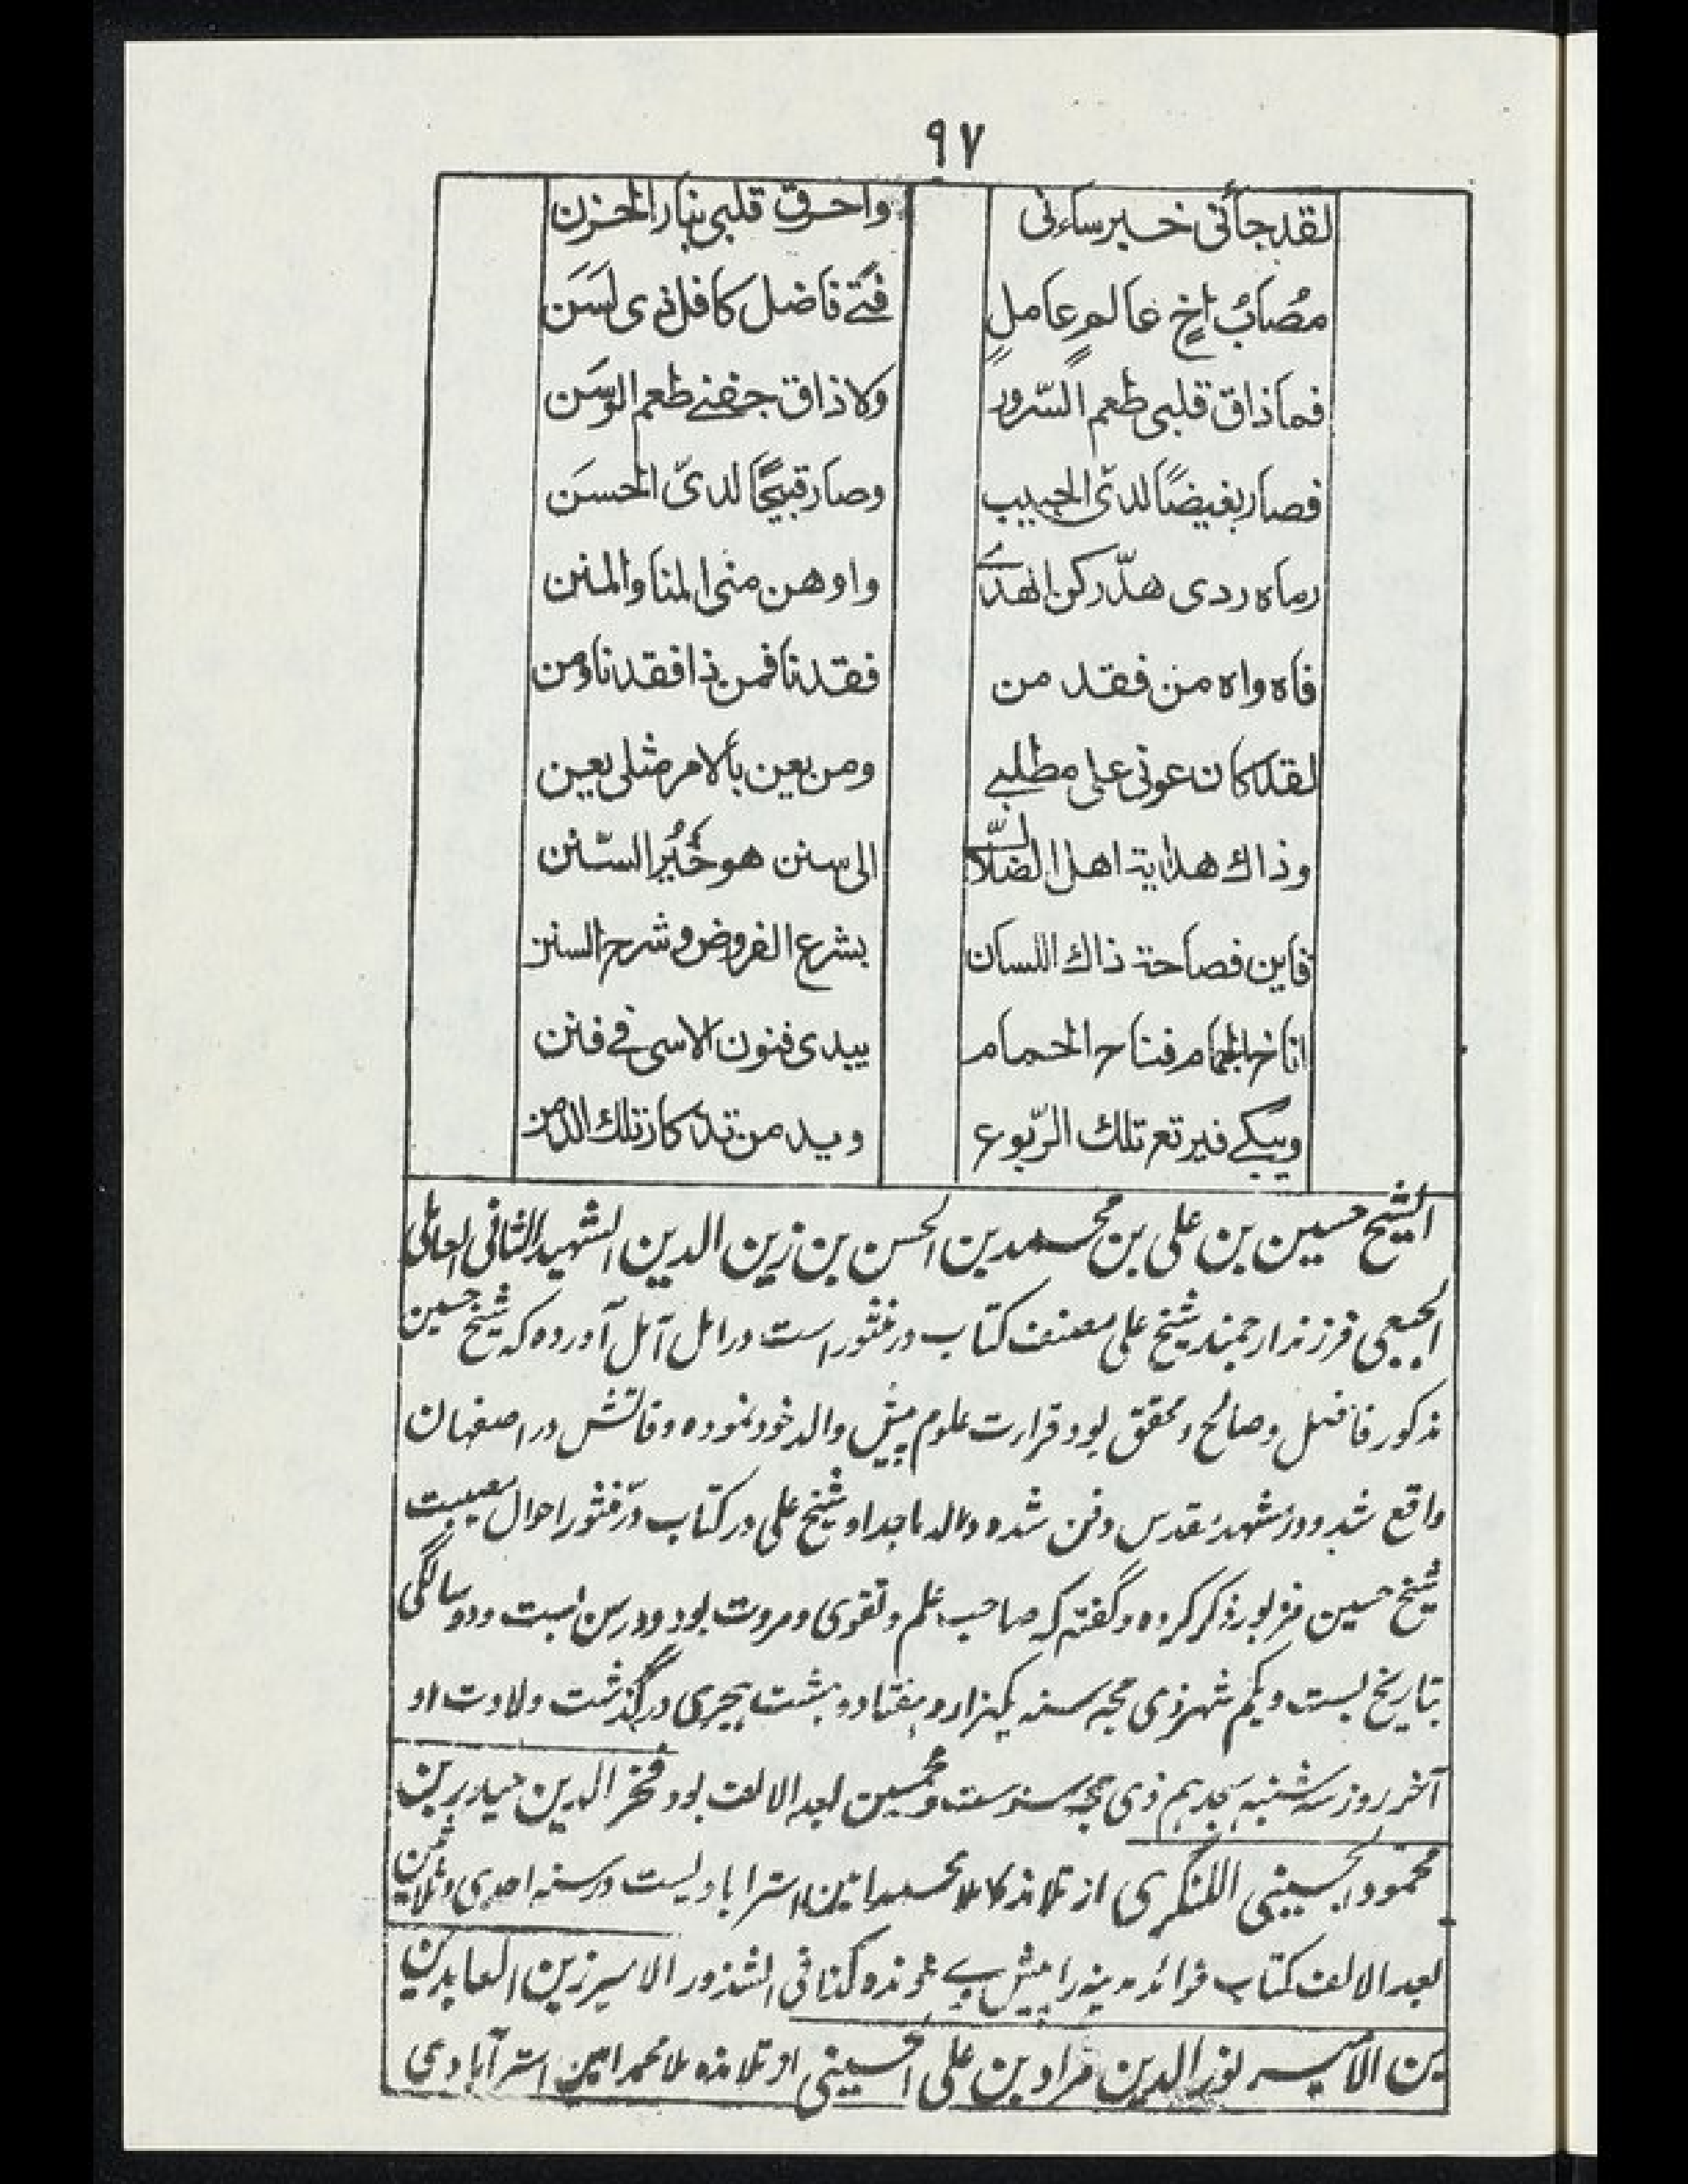 ٩٧
لقد جاٴنى خبر ساءنى واحرق قلبى بنار الحزن
مُصَابُ اخٍ عالمٍ عاملٍ فتًے فاضل كافل ذى لسَن
فما ذاق قلبى طعم السّرور ولا ذاق جفنے طعم الوسَن
فصار بغيضًا لدىّ الحبيب وصار قبيحًا لدىّ الحسن
رماه ردى هدّ ركن الهدىٰ واوهن منى المنا والمنن
فاه واه من فقد من فقدنا فمن ذا فقدنا ومن
لقد كان عونى على مطلبے ومن يعن بألامر مثلى يعن
وذاك هداية اهل الضلال الى سنن هو خَيُر السّنن
فاين فصاحة ذاك اللسان بشرع الفروض وشرح السنن
اناخ الحمام فناح الحمام يبدى فنون الاسى فے فنن
ويبكے فيرتع تلك الرّبوع ويد من تذكار تلك الدمن
الشيخ حسين بن على بن محمد بن الحسن بن زين الدين الشهيد الثانى العاملى
الجبعى فرزند ارجمند شيخ على مصنف كتاب در منثور است در امل آمل آورده كه شيخ حسين
مذكور فاضل و صالح و محقق بود و قرارت علوم پيش والد خود نموده وفاتش در اصفهان
واقع شد و در مشهد مقدس دفن شده و والد ماجد او شيخ على در كتاب درّ منثور احوال مصيبت
شيخ حسين مزبور ذكر كرده و گفته كه صاحب علم و تقوى و مروت بود و در سن بست و دو سالگى
بتاريخ بست و يكم شهر ذى حجه سنه يكهزار و هفتاد و هشت هجرى در گذشت ولادت او
آخر روز سه شنبه هجدهم ذى حجه سنه ست و خمسين بعد الالف بود فخر الدين حيدر بن
محمود الحسينى اللنگرى از تلامذه ملا محمد امين استرابادیست در سنه احدى و ثلاثين
بعد الالف كتاب فوائد مدينه را پيش وے خوانده كذا فى الشذور الامير زين العابدين
بن الامير نور الدين مراد بن على الحسينى از تلامذه ملا محمد امين استرآبادى